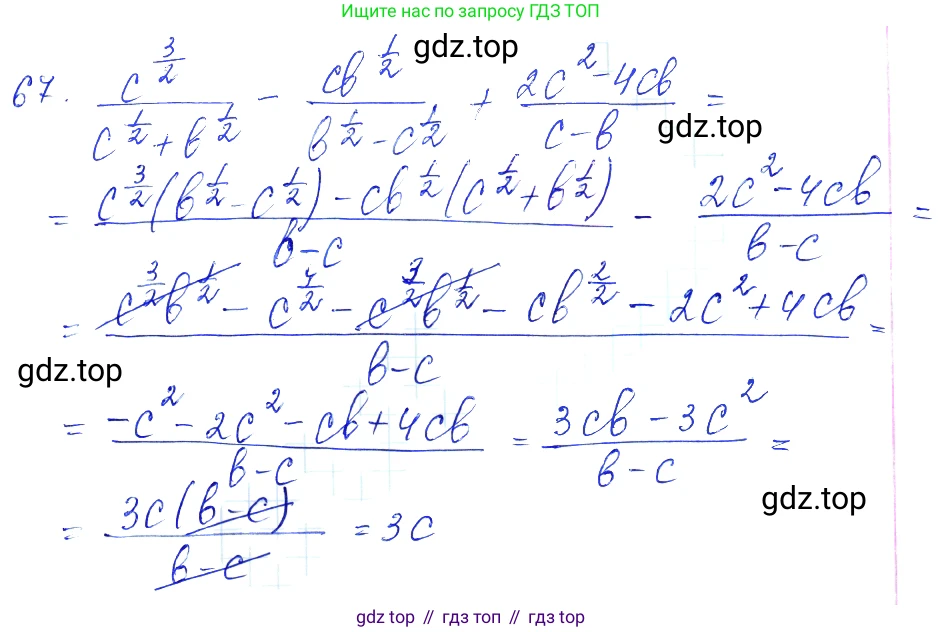 Ищите нас по запросу ГДЗ ТОП
gdz.top
67. c^{3/2}/(c^{1/2}+b^{1/2}) - cb^{1/2}/(b^{1/2}-c^{1/2}) + (2c^2-4cb)/(c-b) =
gdz.top
= (c^{3/2}(b^{1/2}-c^{1/2})-cb^{1/2}(c^{1/2}+b^{1/2}))/(b-c) - (2c^2-4cb)/(b-c) =
= (c^{3/2}b^{1/2} - c^{4/2} - c^{3/2}b^{1/2} - cb^{2/2} - 2c^2+4cb)/(b-c) =
gdz.top
= (-c^2-2c^2-cb+4cb)/(b-c) = (3cb-3c^2)/(b-c) =
gdz.top
= 3c(b-c)/(b-c) = 3c
gdz top // гдз топ // gdz.top